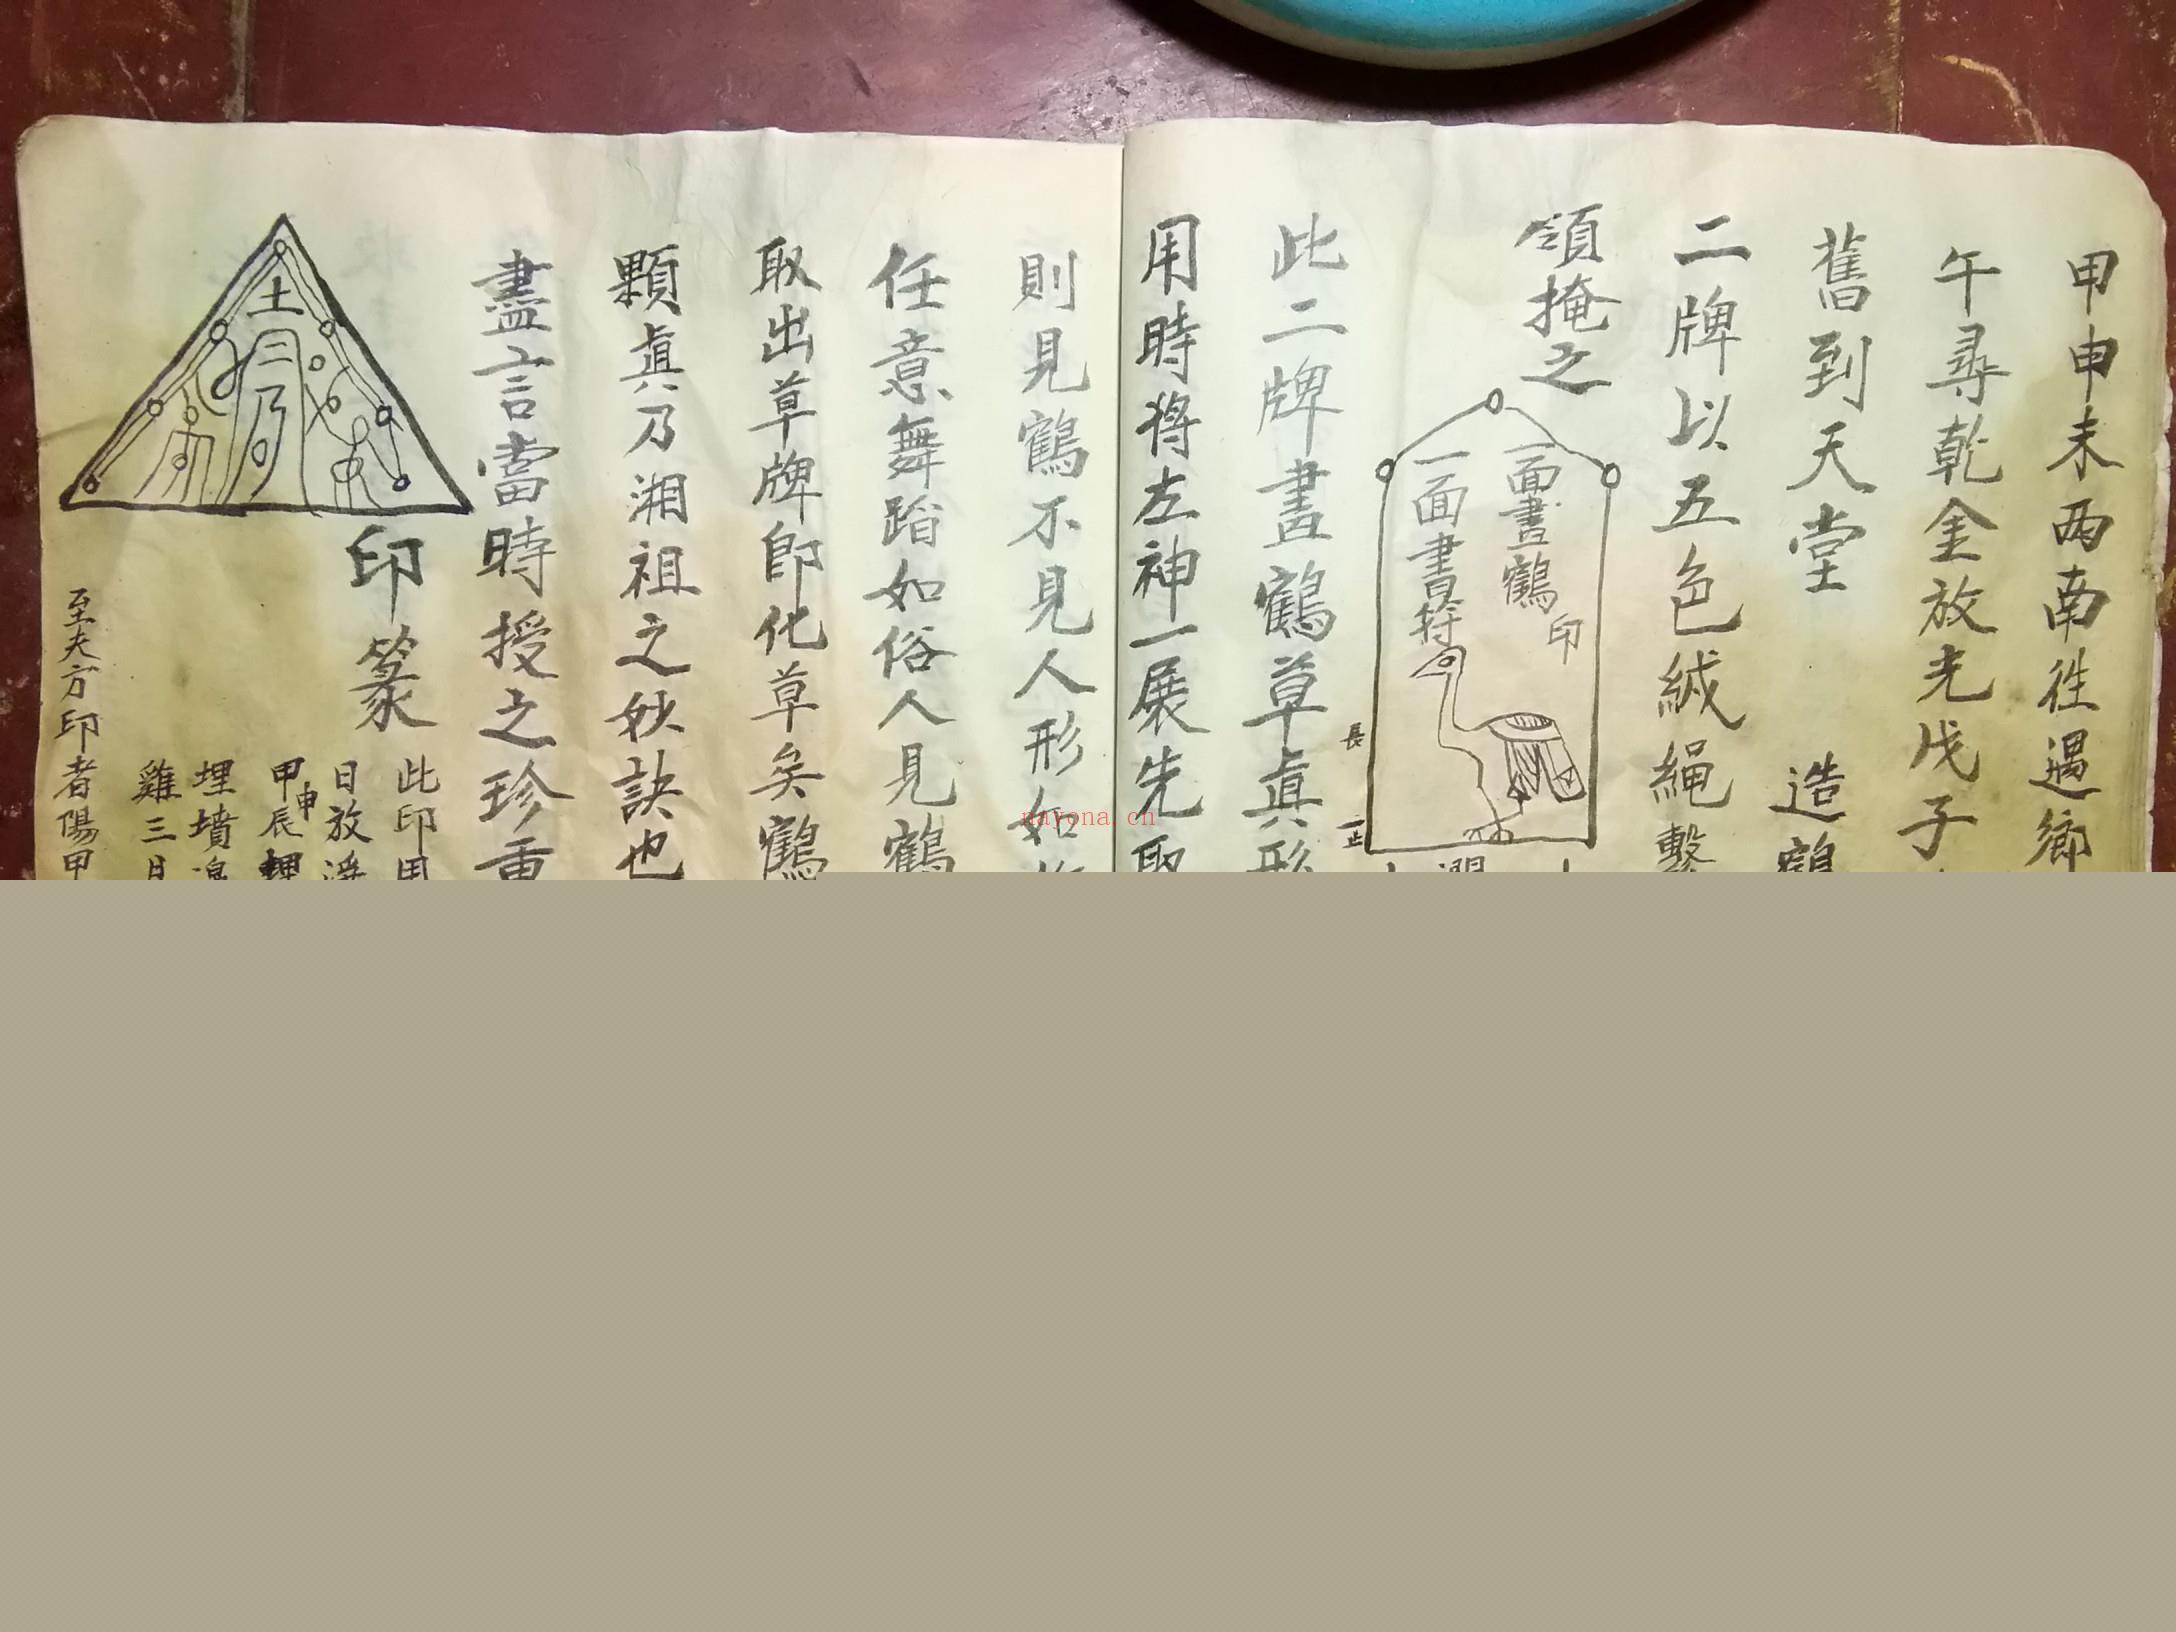 甲申未西南徃遇鄉
午尋乾金放光戊子
舊到天堂 造鶴
二牌以五色絨繩繫
領掩之
一面畫鶴
印
一面書符
長
一
正
此二牌畫鶴草眞形
用時将左神一展先取
則見鶴不見人形如
任意舞蹈如俗人見鶴
取出草牌即化草矣鶴
顆眞乃湘祖之妙訣也
盡言當時授之珍重
土
印篆
此印用
日放
甲申辰
埋墳
雞三月
至夫方印者陽甲
nayona.cn